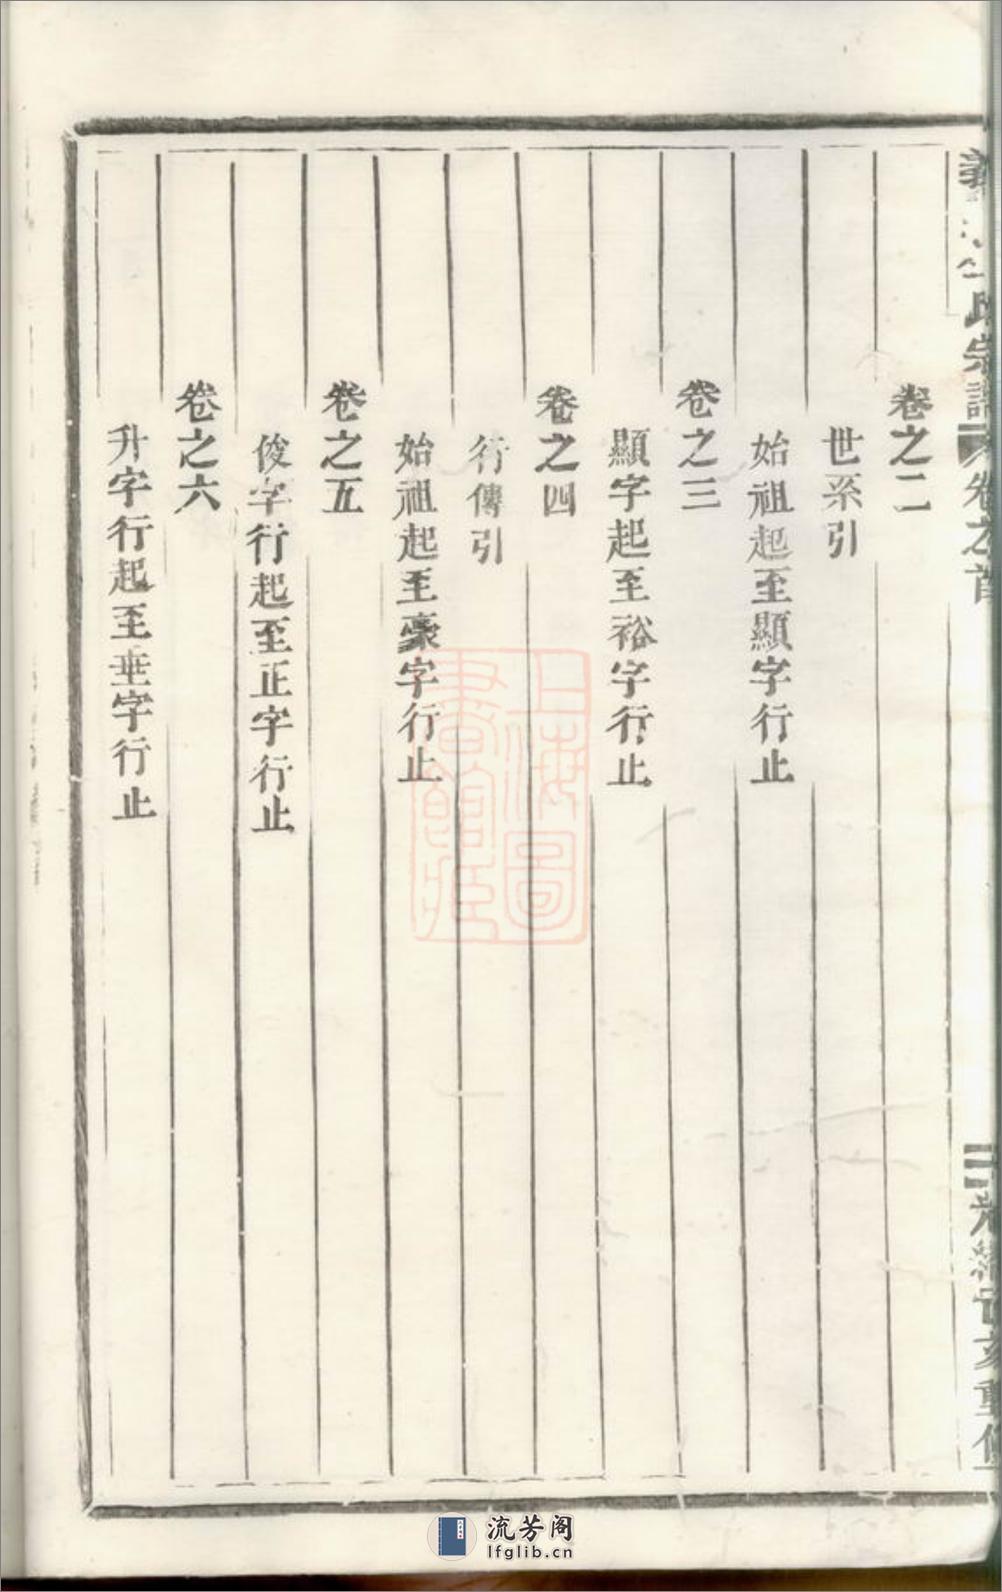 卷之二
世系引
始祖起至顯字行止
卷之三
顯字起至裕字行止
卷之四
行傳引
始祖起至豪字行止
卷之五
俊字行起至正字行止
卷之六
升字行起至垂字行止
氏宗譜
卷之首
二
光緒己亥重修
上海圖書館藏
流芳阁
lfglib.cn